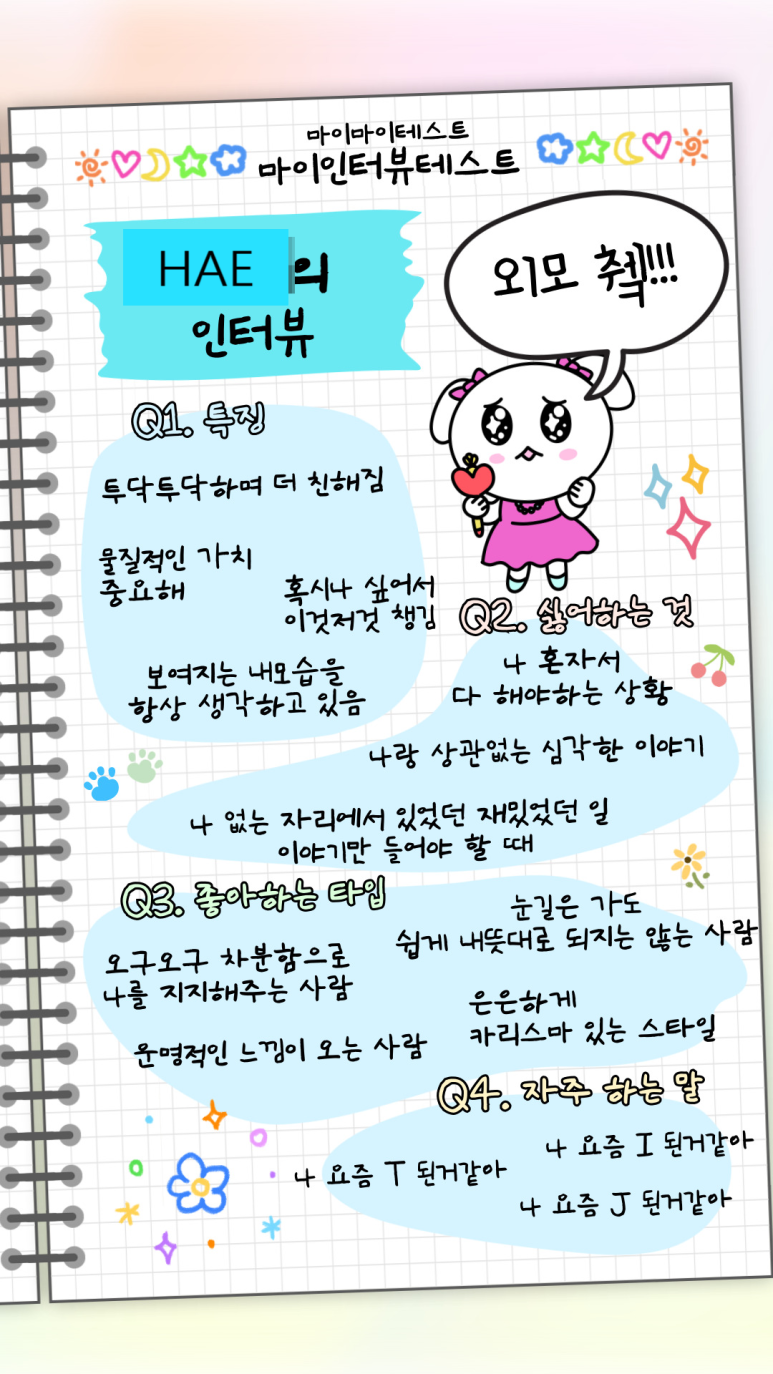 마이마이테스트
마이인터뷰테스트
HAE의
인터뷰
외모 췍!!!
Q1. 특징
투닥투닥하며 더 친해짐
물질적인 가치
중요해
혹시나 싶어서
이것저것 챙김
보여지는 내모습을
항상 생각하고 있음
Q2. 싫어하는 것
나 혼자서
다 해야하는 상황
나랑 상관없는 심각한 이야기
나 없는 자리에서 있었던 재밌었던 일
이야기만 들어야 할 때
Q3. 좋아하는 타입
눈길은 가도
쉽게 내뜻대로 되지는 않는 사람
오구오구 차분함으로
나를 지지해주는 사람
은은하게
카리스마 있는 스타일
운명적인 느낌이 오는 사람
Q4. 자주 하는 말
나 요즘 I 된거같아
나 요즘 T 된거같아
나 요즘 J 된거같아